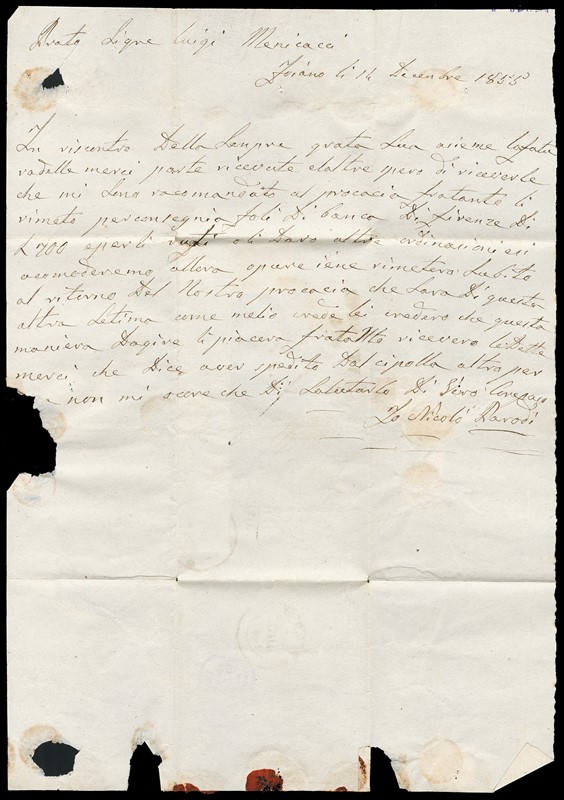 Prato Sigre Luigi Menicacci
Foiano li 14 Decenbre 1855
In riscontro Della Senpre grata Sua asieme la fatu
radelle merci parte ricevute elaltre pero di riceverle
che mi Sono racomandato al procacia fratante li
rimeto perconsegnia foli Di banca Di firenze Di
L 700 eperli gli Daro altre ordinasioni esi
acomoderemo allora opure iene rimetero Subito
al ritorno Del Nostro procacia che Sara Di questa
altra Setima come melio crede lei credero che questa
maniera Dagire li piacera fratanto ricevero le Dette
merci che Dice aver spedito Dal cipolla altro per
non mi ocore che Di Salutarlo Di Vero
Io Nicolò Parodi